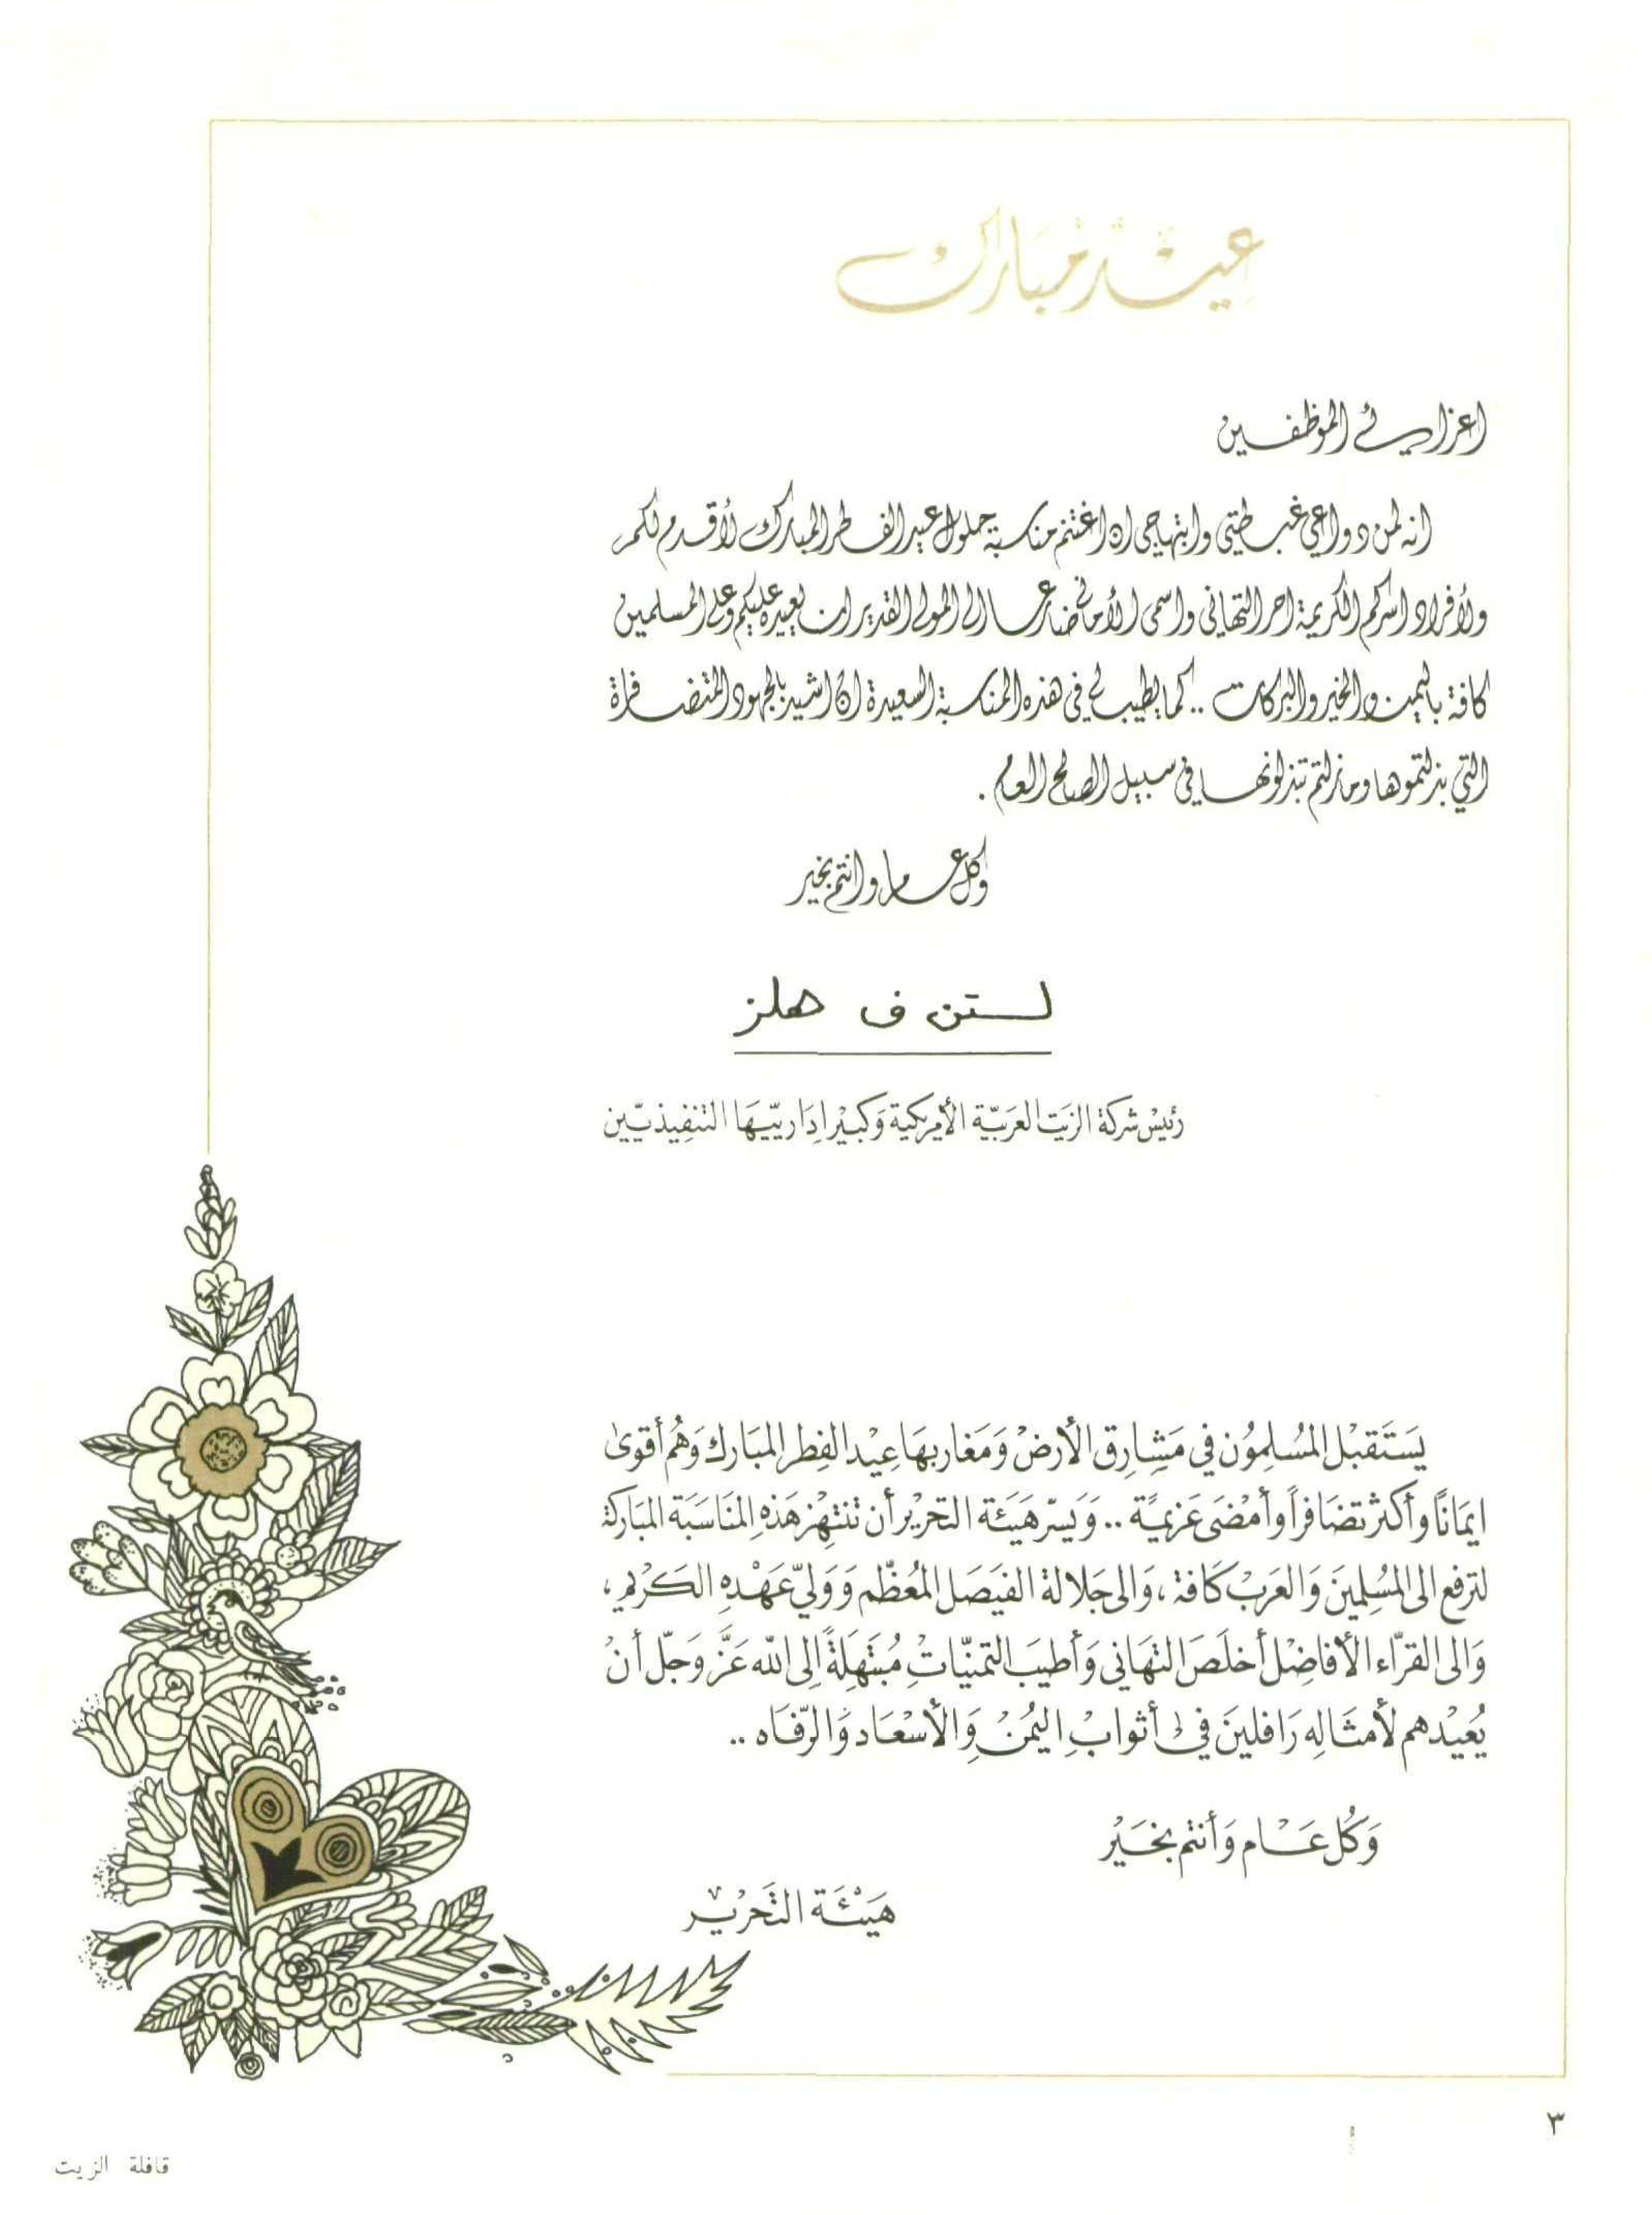 عيد مبارك
اعزائي الموظفين
انه لمن دواعي غبطتي وابتهاجي ان اغتنم مناسبة حلول عيد الفطر المبارك لأقدم لكم
ولأفراد اسركم الكريمة احر التهاني واسمى الأماني ضارعا الى المولى القدير ان يعيده عليكم وعلى المسلمين
كافة باليمن والخير والبركات .. كما يطيب لي في هذه المناسبة السعيدة ان اشيد بالجهود المتضافرة
التي بذلتموها وما زلتم تبذلونها في سبيل الصالح العام .
وكل عام وانتم بخير
لستن ف هلز
رئيْس شركة الزيَت العرَبيّة الأمريكية وَكبيْر إدَارييّهَا التنفِيذييّن
يسَتَقبْل المُسُلِموُن في مَشِارِق الأرضْ وَمَغاربهَا عِيْد الفِطر المبَارك وَهُم أقوىٰ
ايمَانًا وأكثر تضَافراً وأمْضَى عَزيمًة .. وَيَسرّ هَيَئة التحَريْر أن تنتهِْز هَذهِ المنَاسَبَة المبَاركة
لترفع الى المسُلِمينَ وَالعَربْ كَافة ، وَالى جَلالة الفيَصَل المُعظّم وَوَليّ عَهْدهِ الكَريْم ،
وَالى القرّاء الأفاضِل أخلَصَ التهَاني وَأطيَب التمنيّاتْ مُبتَهِلَةً إلى اللّه عَزَّ وَجَلّ أنْ
يُعيْدهم لأمثَالِه رَافلينَ في أثوابِ اليُمنْ وَالأسْعَاد وَالرّفَاه ..
وَكُل عَام وَأنتم بخَيْر
هَيْئَة التَحَريْر
٣
قافلة الزيت